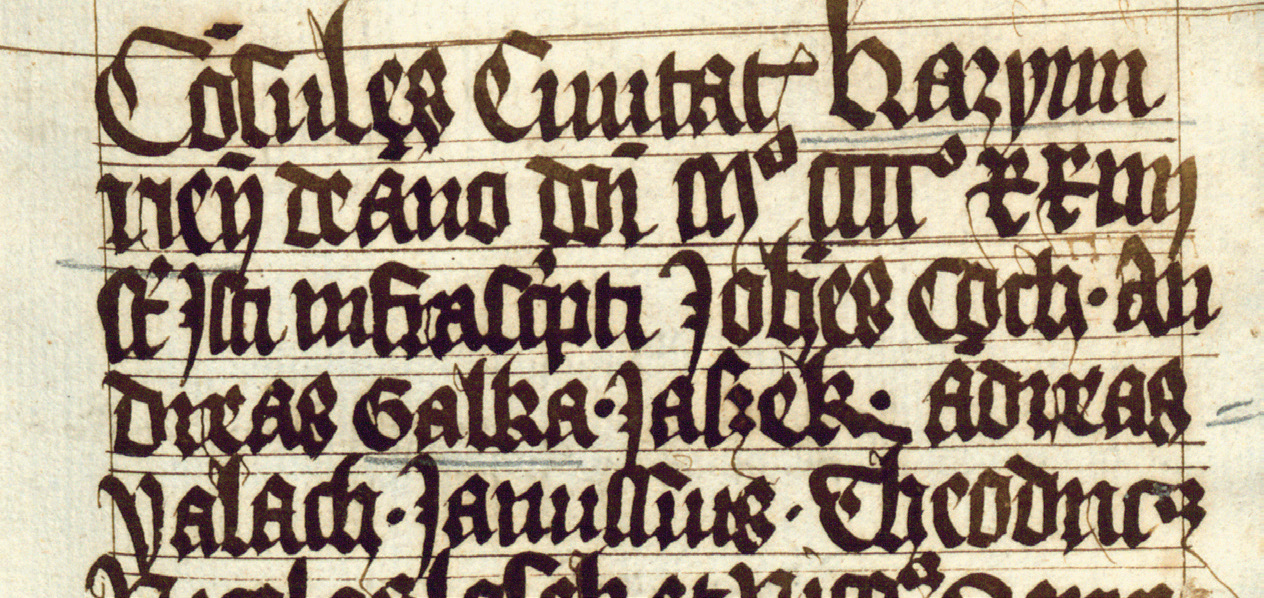 Cōsulęs Ciuitat̛ Kazymi
rien̄ de ano dn̄i Mº iiiiº xxiiij
st̛ Isti infrascͥpti Joh̄es Cǫch · An
dreas Galka · Jaszek · Adreas
Valach · Janussius · Theodricꝰ